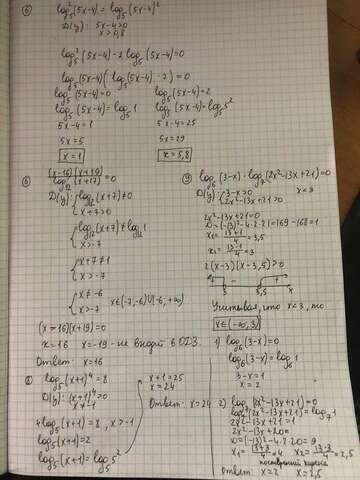 ⑤ log₅²(5x-4) = log₅(5x-4)²
D(y): 5x-4>0
x>0,8
log₅²(5x-4)-2log₅(5x-4)=0
log₅(5x-4)(log₅(5x-4)-2)=0
log₅(5x-4)=0
log₅(5x-4)=log₅1
5x-4=1
5x=5
x=1
log₅(5x-4)=2
log₅(5x-4)=log₅5²
5x-4=25
5x=29
x=5,8
⑥ (x-16)(x+19)/log₁₂(x+17)=0
D(y): { log₁₂(x+7)≠0
x+7>0
{ log₁₂(x+7)≠log₁₂1
x>-7
{ x+7≠1
x>-7
{ x≠-6
x>-7
x∈(-7,-6)∪(-6,+∞)
(x-16)(x+19)=0
x=16 x=-19 - не входит в ОДЗ.
Ответ: x=16
⑧ log₅(x+1)⁴=8
D(y): (x+1)⁴>0
x≠-1
4log₅(x+1)=8, x>-1
log₅(x+1)=2
log₅(x+1)=log₅5²
x+1=25
x=24
Ответ: x=24
log₆(3-x)·log₇(2x²-13x+21)=0
D(y): { 3-x>0
2x²-13x+21>0
2x²-13x+21=0
D=(-13)²-4·2·21=169-168=1
x₁=13+1/4=3,5
x₂=13-1/4=3
2(x-3)(x-3,5)>0
+ - +
3 3,5
Учитывая, что x<3, то
x∈(-∞,3)
1) log₆(3-x)=0
log₆(3-x)=log₆1
3-x=1
x=2
2) log₇(2x²-13x+21)=0
log₇(2x²-13x+21)=log₇1
2x²-13x+21=1
2x²-13x+20=0
D=(-13)²-4·2·20=9
x₁=13+3/4=4 x₂=13-3/4=2,5
посторонний корень
Ответ: x=2 x=2,5